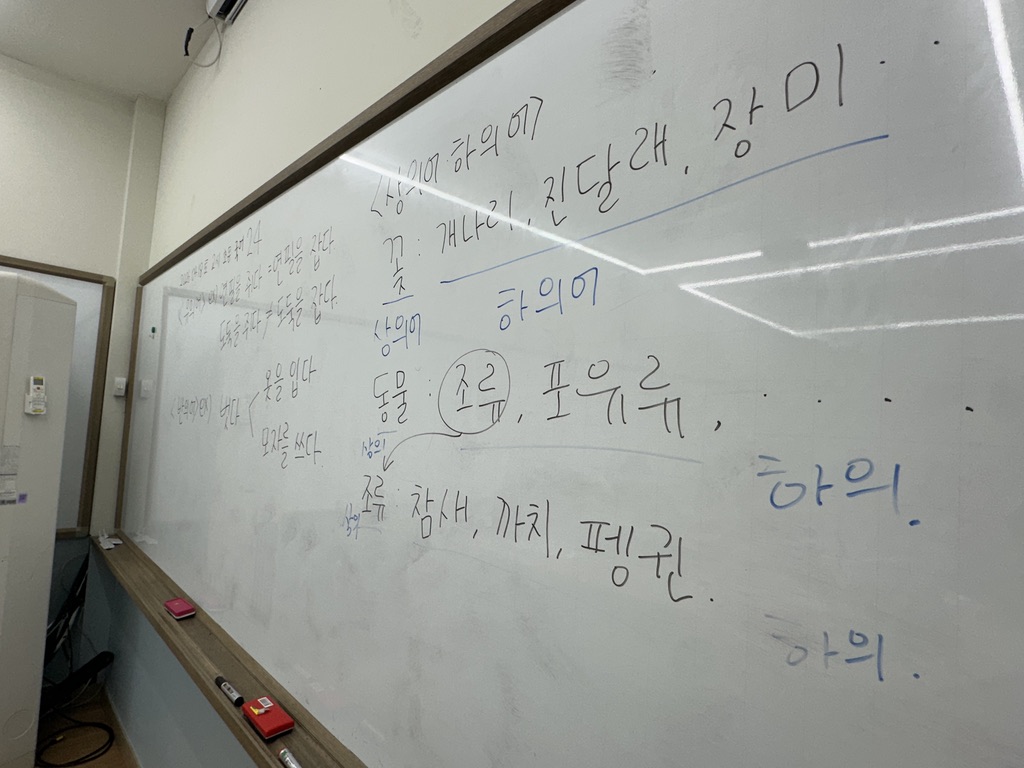 24
연필을 잡다
도둑을 잡다
벗다
옷을 입다
모자를 쓰다.
<상의어 하의어>
꽃 : 개나리, 진달래, 장미 .
상의어 하의어
동물 : 조류, 포유류, . . . .
상의 하의.
조류 : 참새, 까치, 펭귄.
상의 하의.